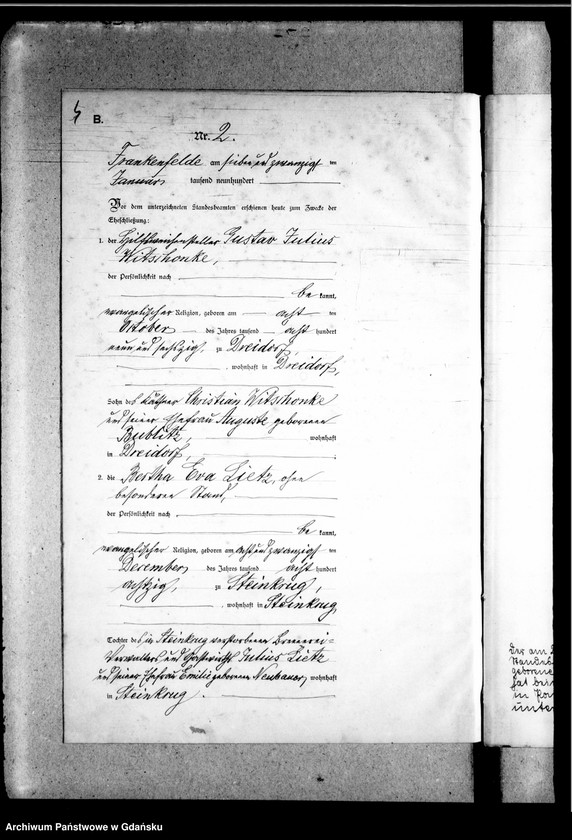 B.
Nr. 2.
Frankenfelde am sieben und zwanzigsten
Januar tausend neunhundert
Vor dem unterzeichneten Standesbeamten erschienen heute zum Zwecke der
Eheschließung:
1. der Hilfsweichensteller Gustav Julius
Witschonke,
der Persönlichkeit nach
be kannt,
evangelischer Religion, geboren am acht ten
October des Jahres tausend acht hundert
neun und sechszig, zu Dreidorf,
, wohnhaft in Dreidorf,
Sohn des Käthner Christian Witschonke
und seiner Ehefrau Auguste geborenen
Bublitz, wohnhaft
in Dreidorf,
2. die Bertha Eva Lietz, ohne
besonderen Stand,
der Persönlichkeit nach
be kannt,
evangelischer Religion, geboren am acht und zwanzigsten
December des Jahres tausend acht hundert
achtzig, zu Steinkrug,
, wohnhaft in Steinkrug,
Tochter des in Steinkrug verstorbenen Brennerei-
Verwalters und Julius Lietz
und seiner Ehefrau Emilie geborenen Neubauer, wohnhaft
in Steinkrug.
Der am
Standes
geborene
hat bei
in
unter
Archiwum Państwowe w Gdańsku